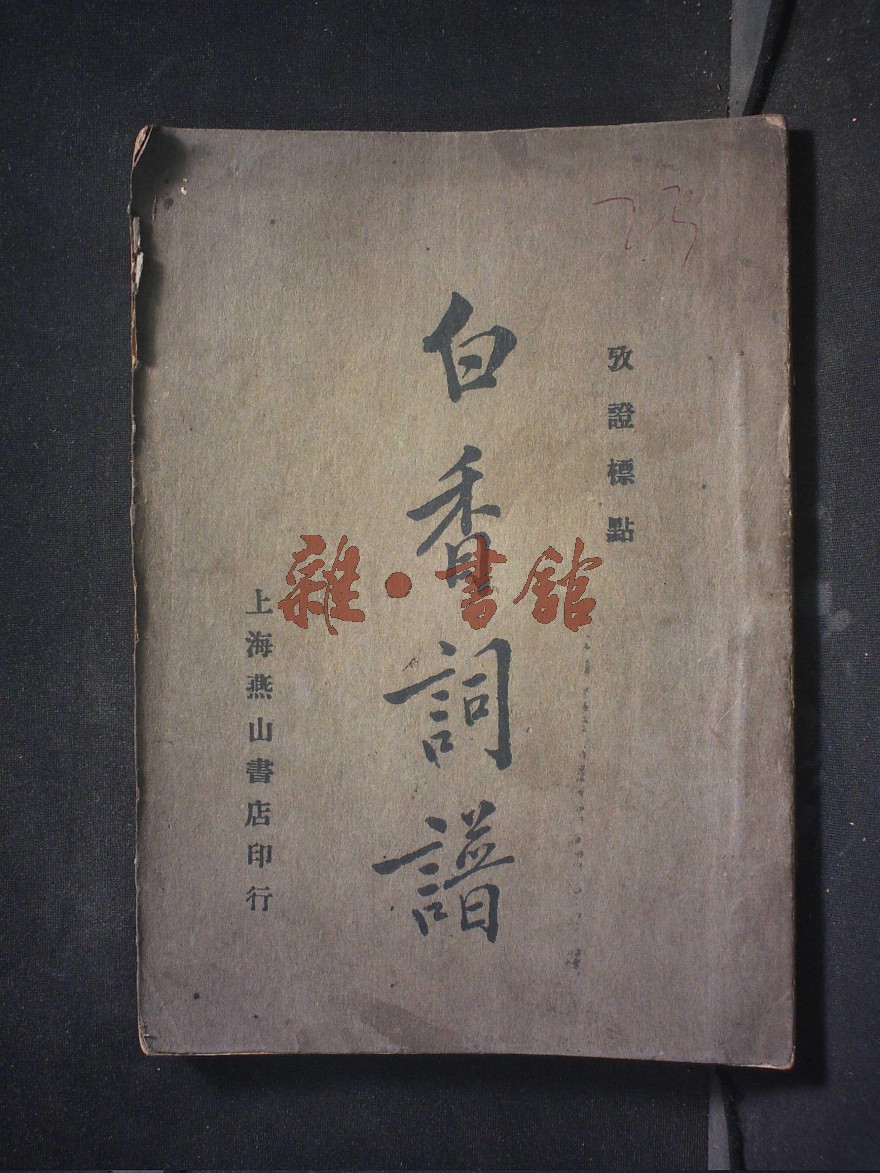 攷證標點
白香詞譜
上海燕山書店印行
雜·書館